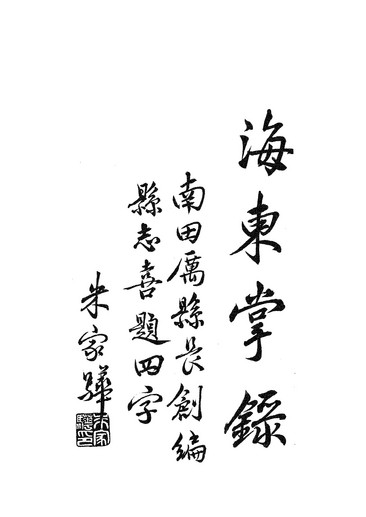 海東掌錄
南田厲縣長創編
縣志喜題四字
朱家驊
朱家驊印